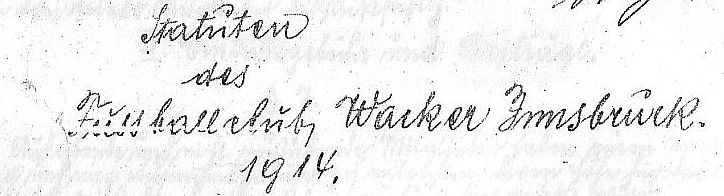 Statuten
des
Fussballclub, Wacker Innsbruck.
1914.